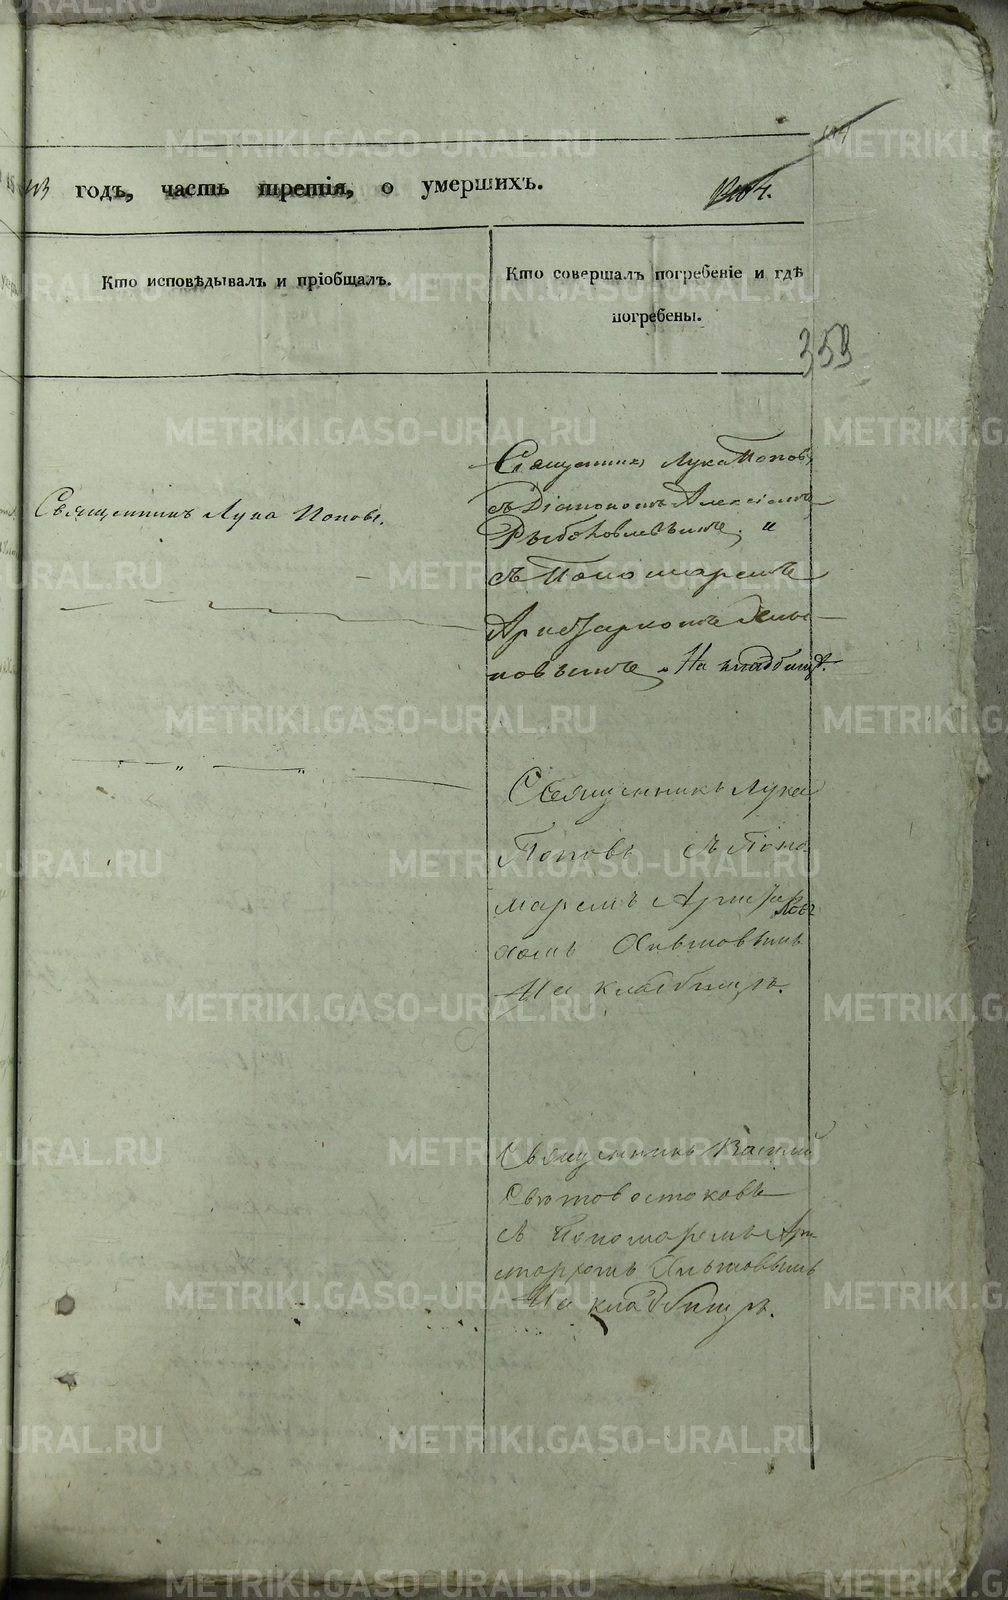 годъ, часть третія, о умершихъ.
Кто исповѣдывалъ и пріобщалъ.
Кто совершалъ погребеніе и гдѣ
погребены.
353
Священникъ Лука Поповъ.
Священникъ Лука Поповъ,
съ Діакономъ Алексіемъ
съ Пономаремъ
Аристархомъ
На кладбищѣ.
Священникъ Лука
Поповъ съ Поно
маремъ Аристар
хомъ Хильтовымъ
На кладбищѣ.
Священникъ Василій
Свѣтовостоковъ
съ Пономаремъ Ари
стархомъ Хильтовымъ
На кладбищѣ.
METRIKI.GASO-URAL.RU